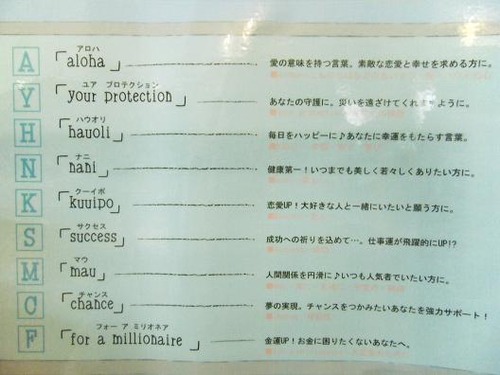 アロハ
A 「aloha」 愛の意味を持つ言葉。素敵な恋愛と幸せを求める方に。
ユア プロテクション
Y 「your protection」 あなたの守護に。災いを遠ざけてくれますように。
ハウオリ
H 「hauoli」 毎日をハッピーに♪あなたに幸運をもたらす言葉。
ナニ
N 「nani」 健康第一！いつまでも美しく若々しくありたい方に。
クーイポ
K 「kuuipo」 恋愛UP！大好きな人と一緒にいたいと願う方に。
サクセス
S 「success」 成功への祈りを込めて…。仕事運が飛躍的にUP!?
マウ
M 「mau」 人間関係を円滑に♪いつも人気者でいたい方に。
チャンス
C 「chance」 夢の実現。チャンスをつかみたいあなたを強力サポート！
フォー ア ミリオネア
F 「for a millionaire」 金運UP！お金に困りたくないあなたへ。